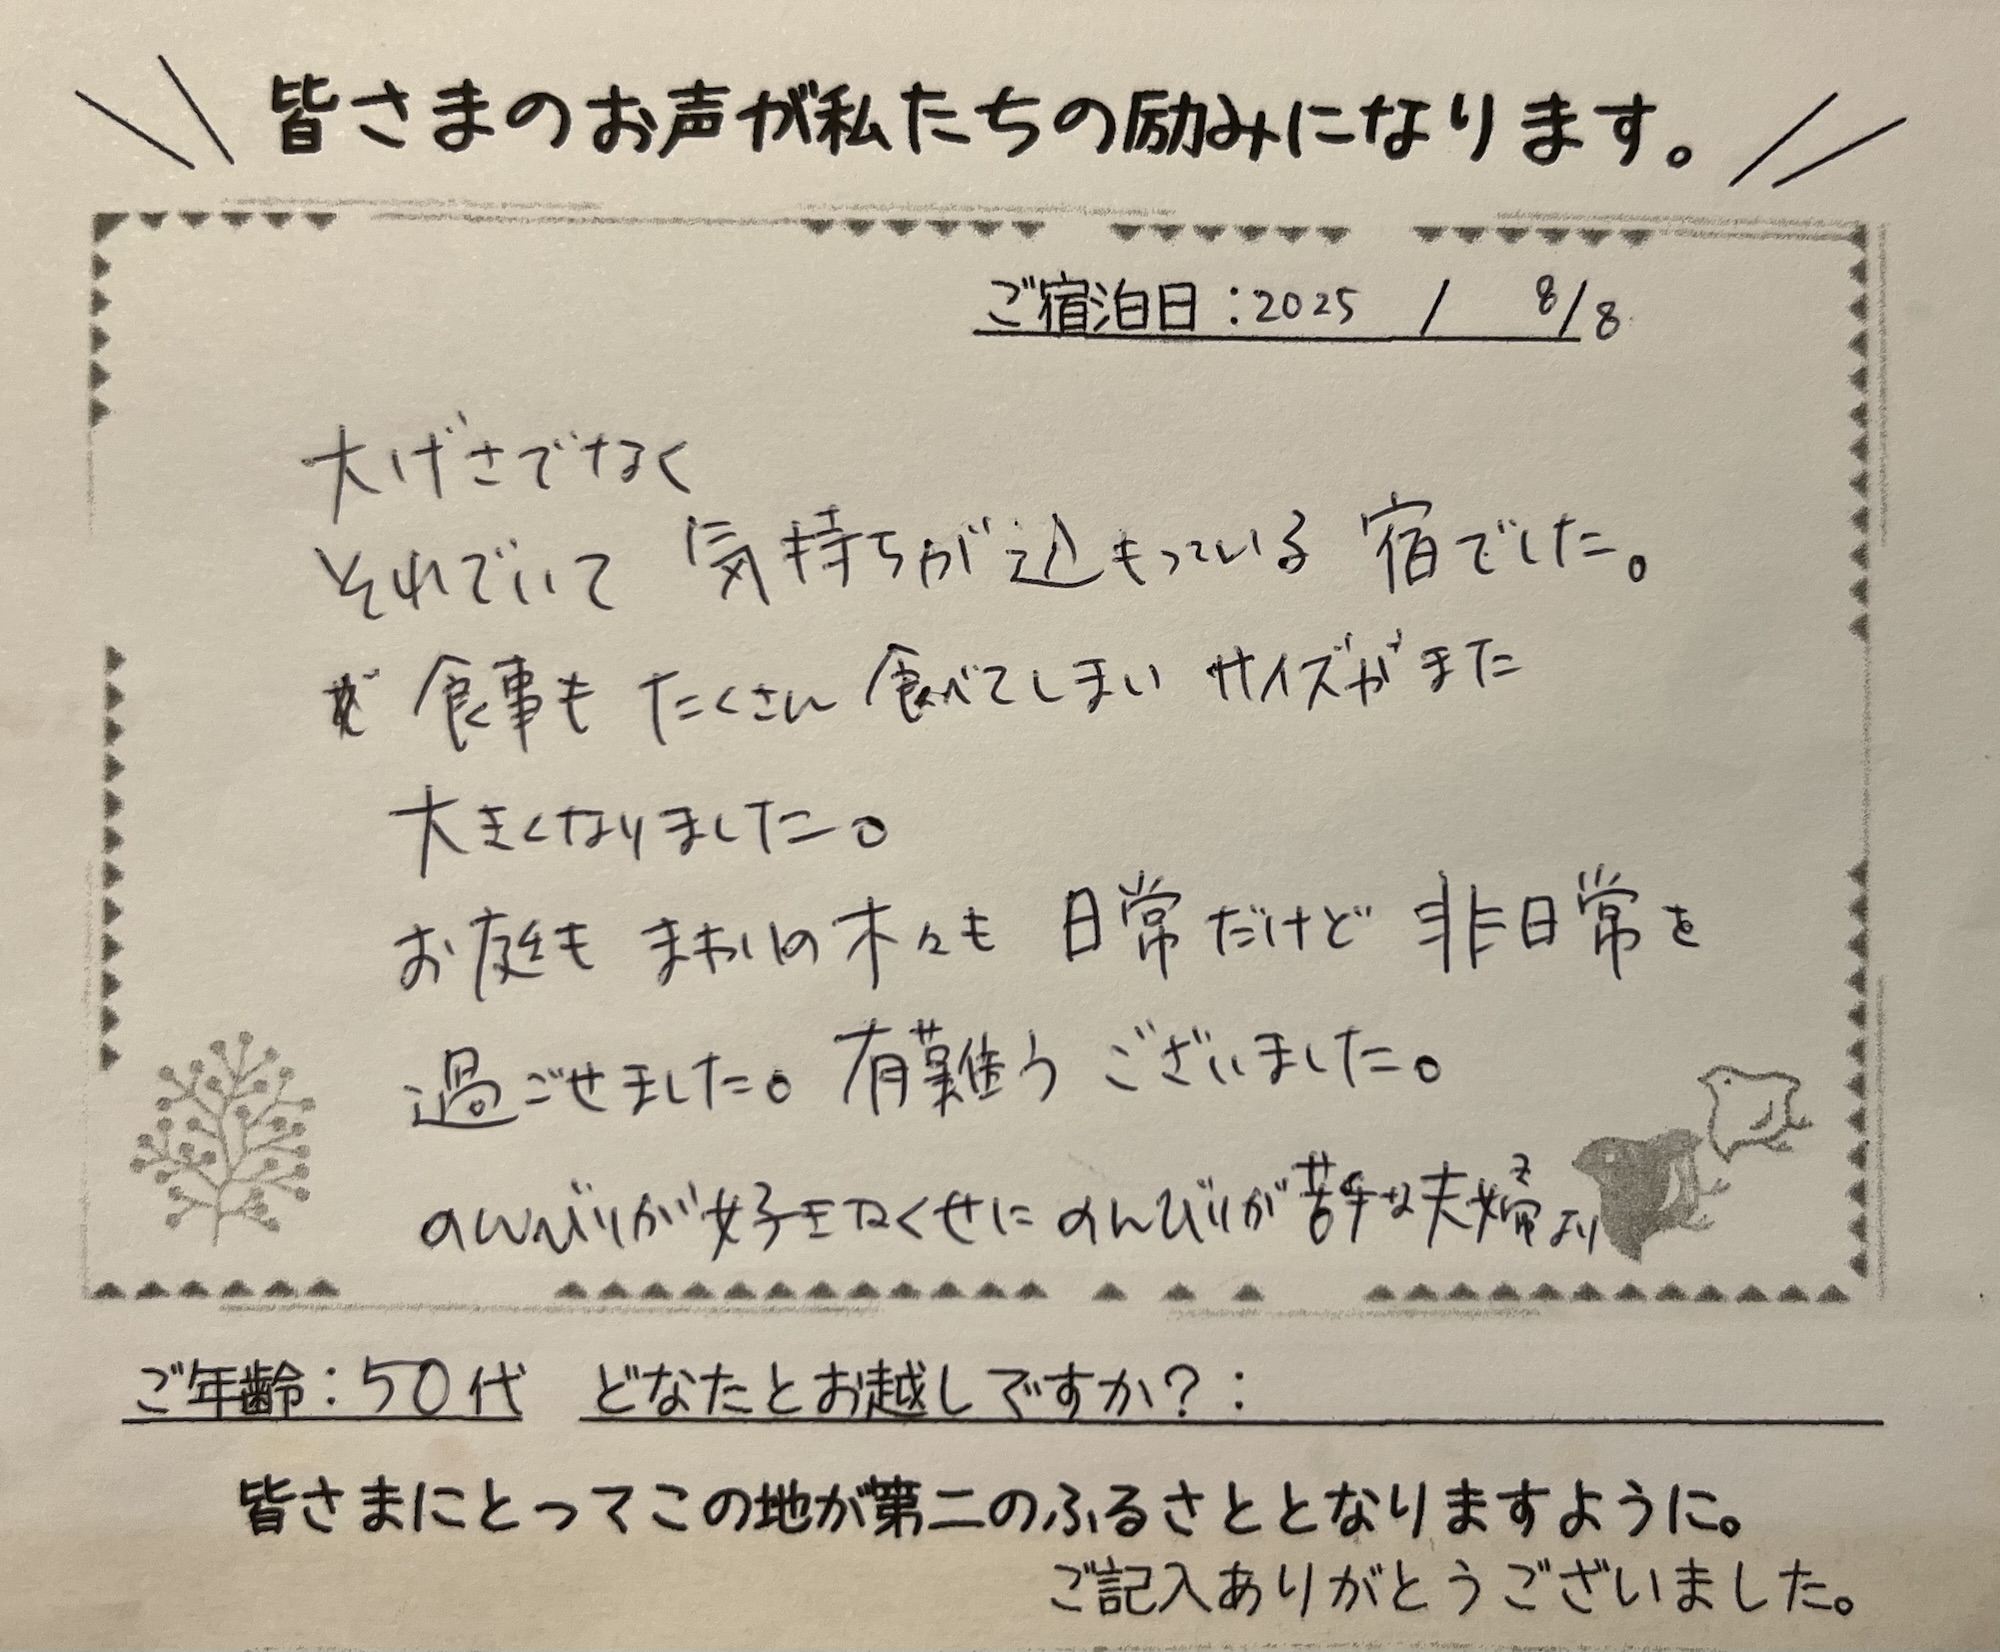 皆さまのお声が私たちの励みになります。
ご宿泊日：2025 / 8/8
大げさでなく
それでいて 気持ちが込もっている 宿でした。
食事も たくさん 食べてしまい サイズがまた
大きくなりました。
お庭も まわりの木々も 日常だけど 非日常を
過ごせました。有難うございました。
のんびりが好きなくせに のんびりが苦手な夫婦より
ご年齢：50代 どなたとお越しですか？：
皆さまにとってこの地が第二のふるさととなりますように。
ご記入ありがとうございました。